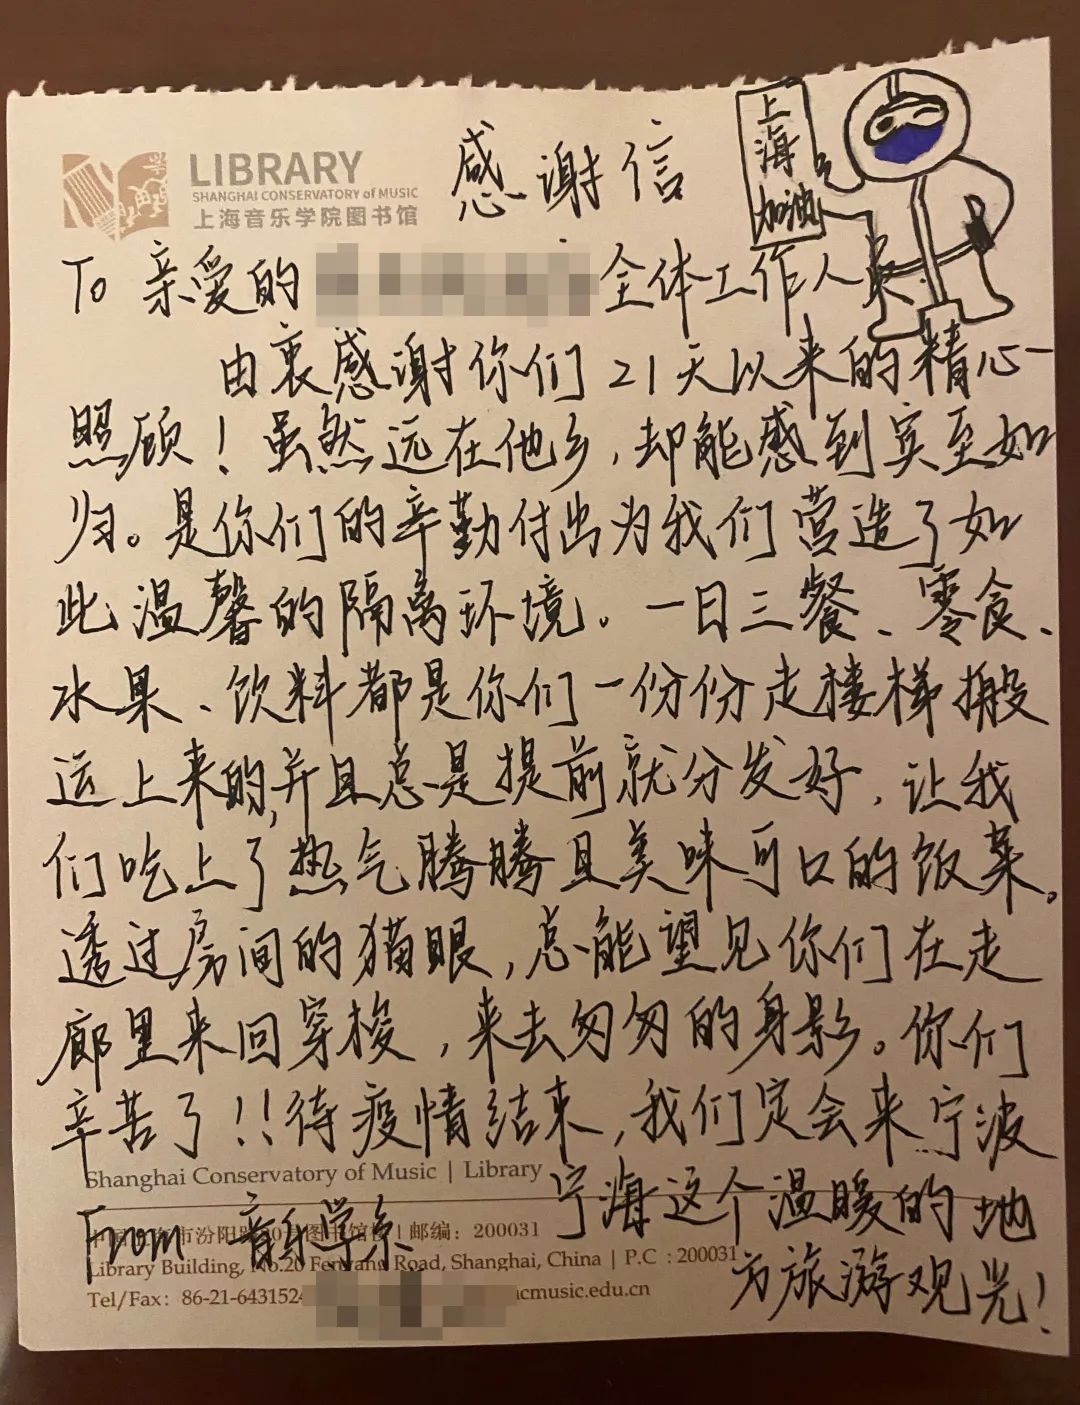 LIBRARY
SHANGHAI CONSERVATORY of MUSIC
上海音乐学院图书馆
感谢信
上海加油
To 亲爱的 全体工作人员
由衷感谢你们21天以来的精心
照顾！虽然远在他乡，却能感到宾至如
归。是你们的辛勤付出为我们营造了如
此温馨的隔离环境。一日三餐、零食、
水果、饮料都是你们一份份走楼梯搬
运上来的，并且总是提前就分发好，让我
们吃上了热气腾腾且美味可口的饭菜。
透过房间的猫眼，总能望见你们在走
廊里来回穿梭，来去匆匆的身影。你们
辛苦了！！待疫情结束，我们定会来宁波
宁海这个温暖的地
方旅游观光！
From 音乐学系
Shanghai Conservatory of Music | Library
中国上海市汾阳路20号图书馆楼 | 邮编：200031
Library Building, No.20 Fenyang Road, Shanghai, China | P.C : 200031
Tel/Fax: 86-21-6431524 acmusic.edu.cn